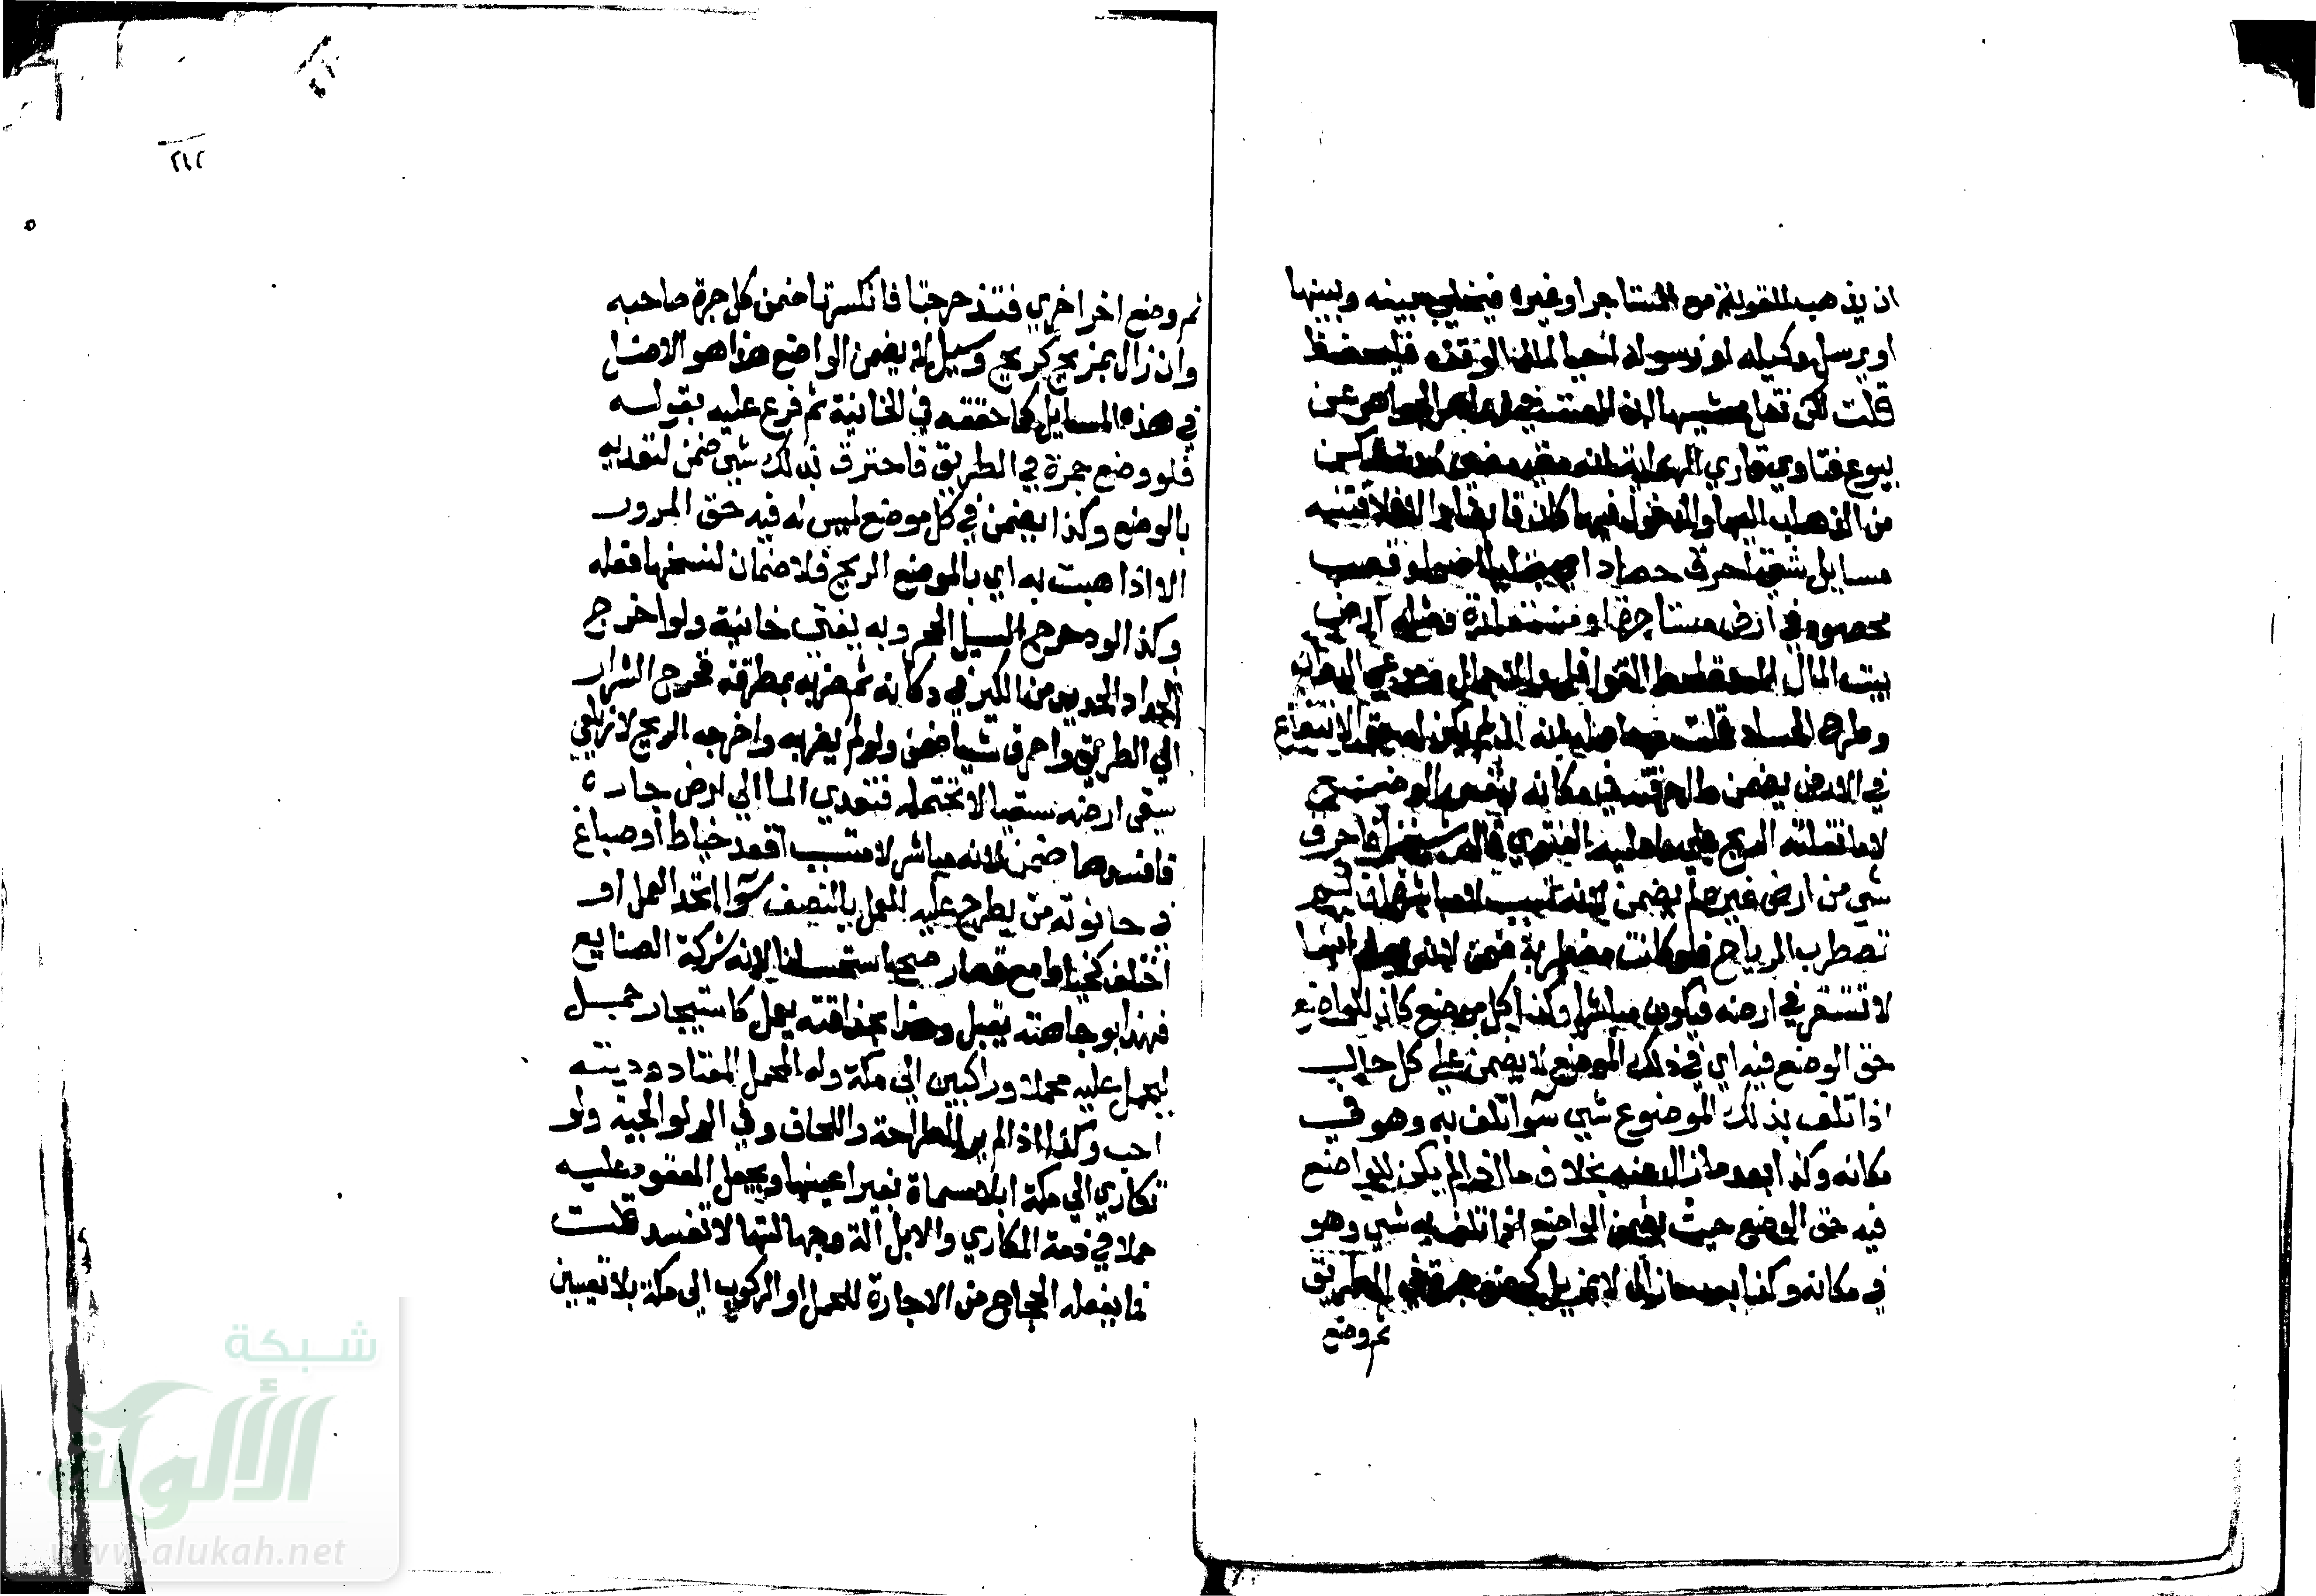 ان يذهب للقرية مع المستاجر او غيره فيخلي بينه وبينها
او يرسل وكيله او رسوله احيا لمال الوقف فليحفظ
قلت لكن نقل محشيها ابن المصنف في زواهر الجواهر عن
بيوع فتاوي قاري الهداية انه متي مضي مدة يتمكن
من الذهاب اليها والدخول فيها كان قابضا والا فلا فتنبه
مسايل شتي احرق حصايد اي بقايا اصول قصب
محصود في ارض مستاجرة او مستعارة ومثله ارض
بيت المال المعدة لحط القوافل والاحمال ومرعي الدواب
وطرح الحصايد قلت وحاصله انه ان لم يكن له حق الانتفاع
في الارض يضمن ما احرقته في مكانه بنفس الوضع
لا ما نقلته الريح علي ما عليه الفتوي قاله شيخنا فاحرق
شي من ارض غيره لم يضمن لانه تسبب لا مباشرة ان لم
تضطرب الرياح فلو كانت مضطربة ضمن لانه يعلم انها
لا تستقر في ارضه فيكون مباشرا وكذا كل موضع كان للواضع
حق الوضع فيه اي في ذلك الموضع لا يضمن علي كل حال
اذا تلف بذلك الموضوع شي سوا تلف به وهو في
مكانه وكذا بعد ما زال عنه بخلاف ما اذا لم يكن للواضع
فيه حق الوضع حيث يضمن الواضع اذا تلف به شي وهو
في مكانه وكذا بعد ما زال لا بمزيل كوضع جرة في الطريق
ثم وضع
٢٤٢
ثم وضع اخر اخري فتدحرجتا فانكسرتا ضمن كل جرة صاحبه
وان زال بمزيل كريح وسيل لا يضمن الواضع هذا هو الاصل
في هذه المسايل كما حققه في الخانية ثم فرع عليه بقوله
فلو وضع جمرة في الطريق فاحترق بذلك شي ضمن لتعديه
بالوضع وكذا يضمن في كل موضع ليس له فيه حق المرور
الا اذا هبت به اي بالموضع الريح فلا ضمان لنسخها فعله
وكذا لو دحرج السيل الحجر وبه يفتي خانية ولو اخرج
الحداد الحديد من الكير في دكانه ثم ضربه بمطرقة فخرج الشرار
الي الطريق واحرق شيا ضمن ولو لم يضربه واخرجه الريح لا زيلعي
سقي ارضه سقيا لا تحتمله فتعدي الما الي ارض جاره
فافسدها ضمن لانه مباشر لا متسبب اقعد خياط او صباغ
في حانوته من يطرح عليه العمل بالنصف سوا اتحد العمل او
اختلف كخياط مع قصار صح استحسانا لانه شركة الصنايع
فهذا بوجاهته يقبل وهذا بحذاقته يعمل كاستيجار جمل
ليحمل عليه محملا وراكبين الي مكة وله المحمل المعتاد ورويته
احب وكذا اذا لم ير الطراحة واللحاف وفي الولوالجية ولو
تكاري الي مكة ابلا مسماة بغير اعيانها ويجعل المعقود عليه
حملا في ذمة المكاري والابل الة وجهالتها لا تفسد قلت
فما يفعله الحجاج من الاجارة للحمل او الركوب الي مكة بلا تعيين
شبكة
الألوكة
www.alukah.net